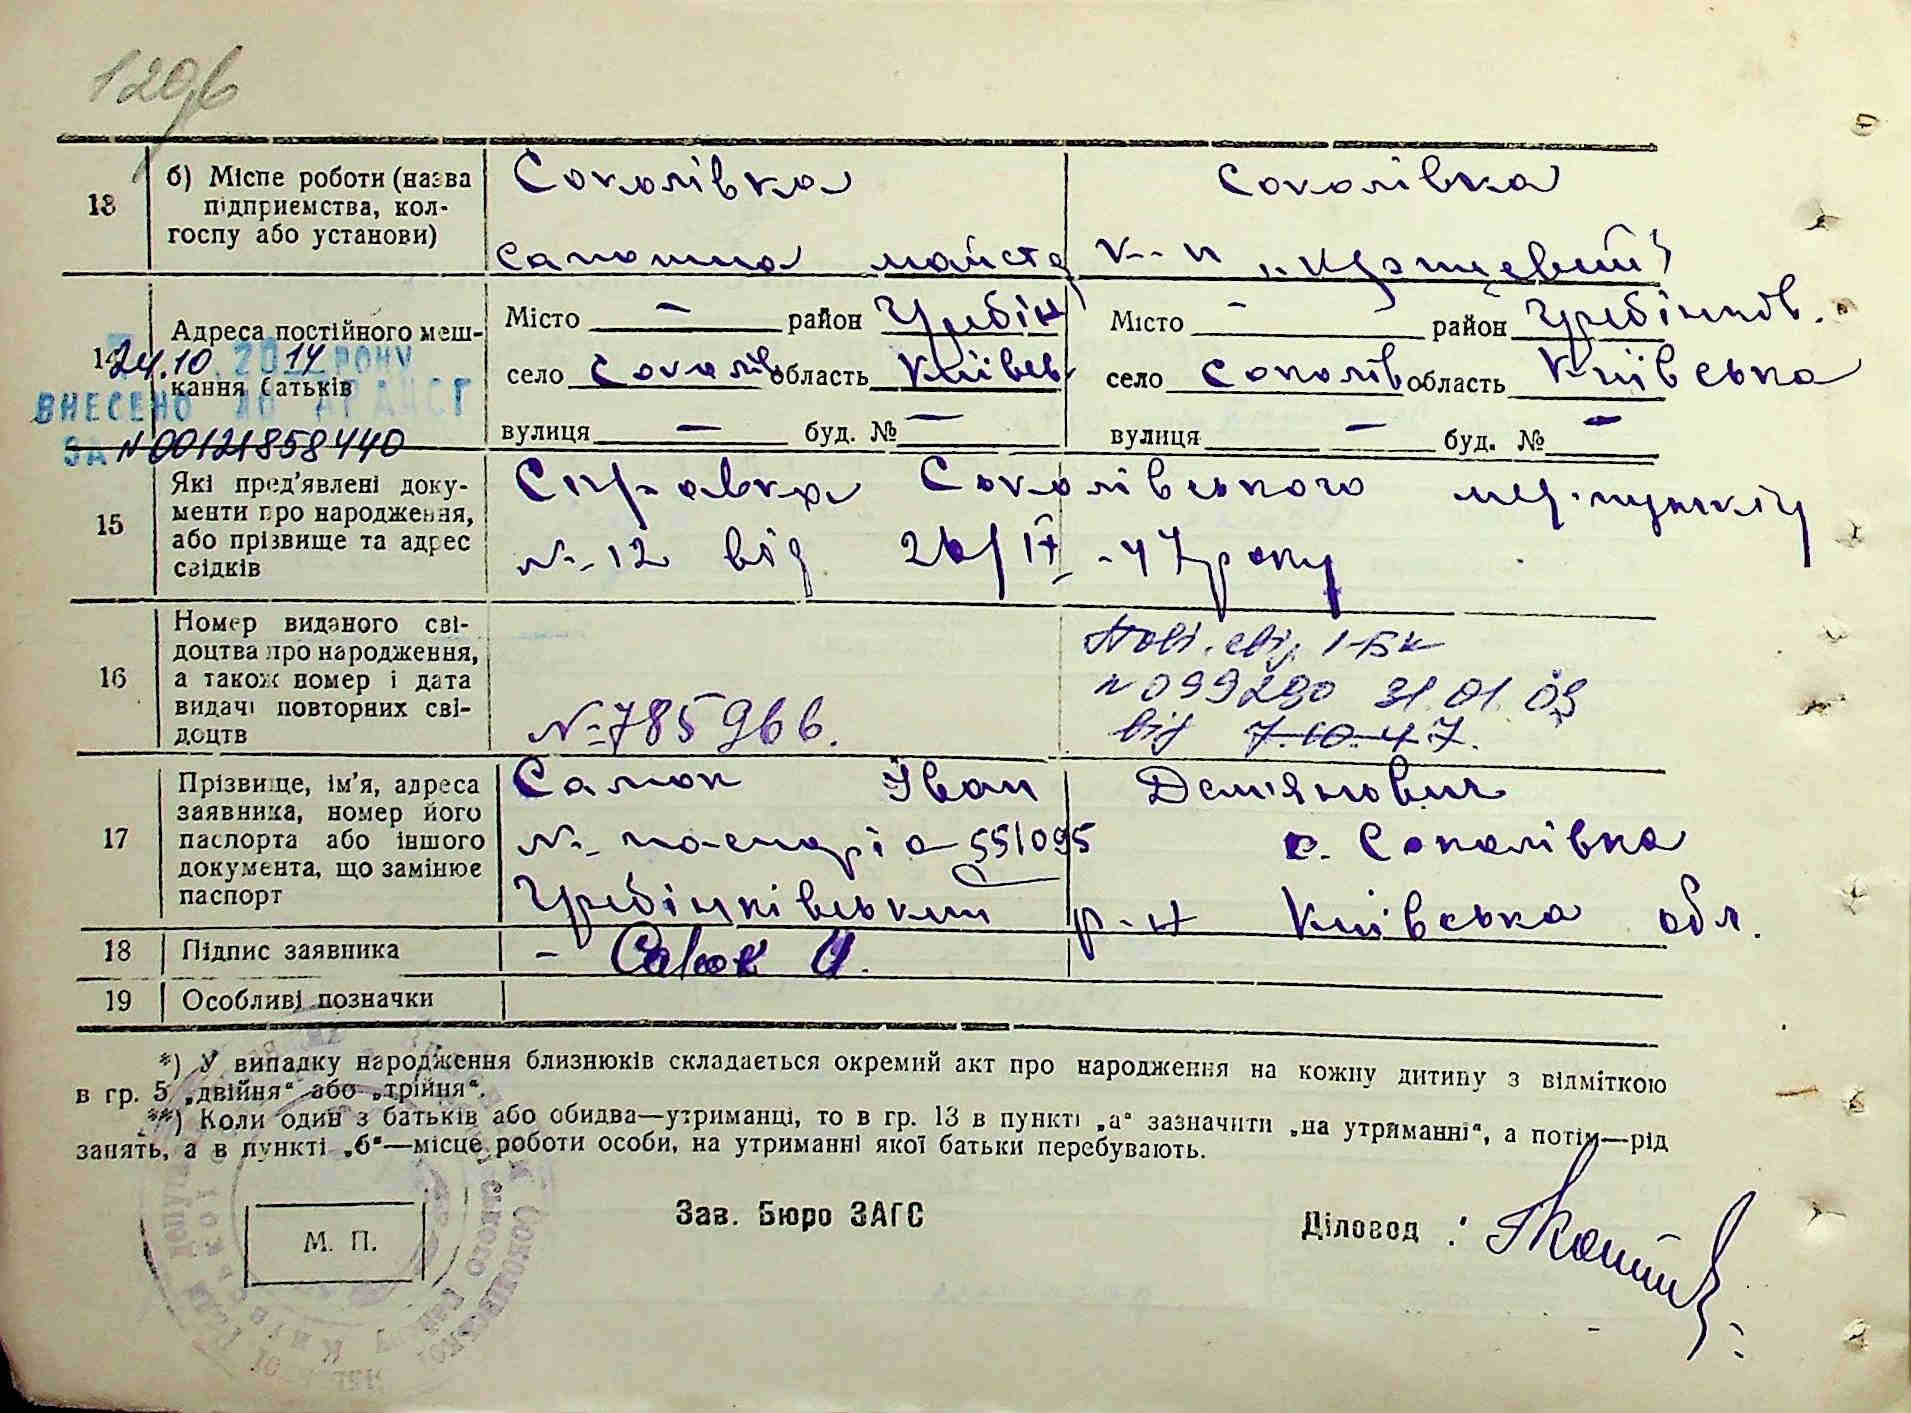 129б
13 б) Місце роботи (назва підприємства, колгоспу або установи)
Соколівка
Соколівка
сапожна майстр
к-п
14 Адреса постійного мешкання батьків
Місто — район Гребінк
Місто - район Гребінків.
село Соколів область Київсь
село Соколів область Київська
вулиця — буд. № —
вулиця — буд. № —
24.10.2014 РОКУ
ВНЕСЕНО ДО ДРАЦСГ
ЗА N00121858440
15 Які пред'явлені документи про народження, або прізвище та адрес свідків
Справка Соколівського мед.пункту
№ 12 від 26/IX - 47 року
16 Номер виданого свідоцтва про народження, а також номер і дата видачі повторних свідоцтв
№ 785966.
Повт. свід. 1-БК
N 099290 31.01.09
від 7.10.47.
17 Прізвище, ім'я, адреса заявника, номер його паспорта або іншого документа, що замінює паспорт
Салюк Іван Дем'янович
№ паспорта 551095 с. Соколівка
Гребінківський р-н Київська обл.
18 Підпис заявника
- Салюк И.
19 Особливі позначки
*) У випадку народження близнюків складається окремий акт про народження на кожну дитину з відміткою
в гр. 5 „двійня“ або „трійня“.
**) Коли один з батьків або обидва—утриманці, то в гр. 13 в пункті „а“ зазначити „на утриманні“, а потім—рід
занять, а в пункті „б“—місце роботи особи, на утриманні якої батьки перебувають.
М. П.
Зав. Бюро ЗАГС
Діловод :